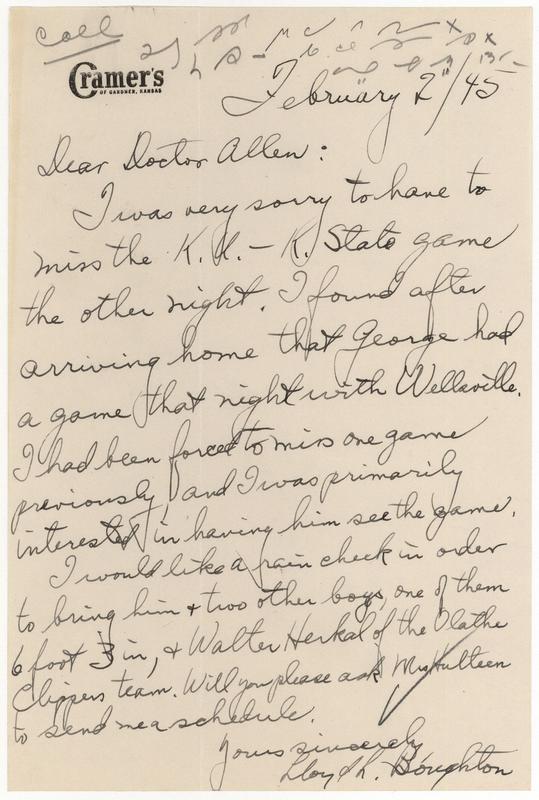 Call
Cramer's
OF GARDNER, KANSAS
February 2"/45
Dear Doctor Allen:
I was very sorry to have to
miss the K.U. – K. State game
the other night. I found after
arriving home that George had
a game that night with Wellsville.
I had been forced to miss one game
previously, and I was primarily
interested in having him see the game.
I would like a rain check in order
to bring him & two other boys, one of them
6 foot 3 in, & Walter Herkal of the Olathe
Clippers team. Will you please ask Mr Hulteen
to send me a schedule.
Yours sincerely
Lloyd L. Boughton